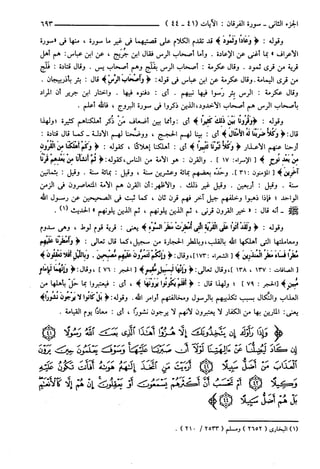 الجزء الثانى - سورة الفرقان : الآيات (٤١ - ٤٤)
٦٩٣
وقوله : ﴿وَعَادًا وَثَمُودَ﴾ قد تقدم الكلام على قصتيهما فى غير ما سورة ، منها فى «سورة
الأعراف» بما أغنى عن الإعادة . وأما أصحاب الرس فقال ابن جُرَيْج ، عن ابن عباس: هم أهل
قرية من قرى ثمود . وقال عكرمة : أصحاب الرس بفَلَج وهم أصحاب يس . وقال قتادة : فَلْج
من قرى اليمامة . وقال عكرمة عن ابن عباس فى قوله: ﴿وَأَصْحَابَ الرَّسِّ﴾ قال : بئر بأذربيجان .
وقال عكرمة : الرس بئر رَسوا فيها نبيهم . أى : دفنوه فيها . واختار ابن جرير أن المراد
بأصحاب الرس هم أصحاب الأخدود،الذين ذكروا فى سورة البروج ، فالله أعلم .
وقوله : ﴿وَقُرُونًا بَيْنَ ذَٰلِكَ كَثِيرًا﴾ أى : وأمما بين أضعاف من ذُكر أهلكناهم كثيرة ؛ولهذا
قال: ﴿وَكُلًّا ضَرَبْنَا لَهُ الْأَمْثَالَ﴾ أى : بينا لهم الحجج ، ووضحنا لهم الأدلة ـ كما قال قتادة :
أزحنا عنهم الأعذار ﴿وَكُلًّا تَبَّرْنَا تَتْبِيرًا﴾ أى : أهلكنا إهلاكا ، كقوله : ﴿وَكَمْ أَهْلَكْنَا مِنَ الْقُرُونِ
مِنْ بَعْدِ نُوحٍ﴾ [الإسراء: ١٧] . والقرن : هو الأمة من الناس،كقوله: ﴿ثُمَّ أَنشَأْنَا مِنْ بَعْدِهِمْ قَرْنًا
آخَرِينَ﴾ [المؤمنون : ٣١] . وحدّه بعضهم بمائة وعشرين سنة ، وقيل : بمائة سنة . وقيل : بثمانين
سنة . وقيل : أربعين . وقيل غير ذلك . والأظهر: أن القرن هم الأمة المتعاصرون فى الزمن
الواحد ؛ فإذا ذهبوا وخلفهم جيل آخر فهم قرن ثان ، كما ثبت فى الصحيحين عن رسول الله
ﷺ ـ أنه قال : «خير القرون قرنى ، ثم الذين يلونهم ، ثم الذين يلونهم» الحديث (١) .
وقوله : ﴿وَلَقَدْ أَتَوْا عَلَى الْقَرْيَةِ الَّتِي أُمْطِرَتْ مَطَرَ السَّوْءِ﴾ يعنى : قرية قوم لوط ، وهى سدوم
ومعاملتها التى أهلكها الله بالقلب،وبالمطر الحجارة من سجيل،كما قال تعالى : ﴿وَأَمْطَرْنَا عَلَيْهِم
مَّطَرًا فَسَاءَ مَطَرُ الْمُنذَرِينَ﴾ [الشعراء : ١٧٣]،وقال: ﴿وَإِنَّكُمْ لَتَمُرُّونَ عَلَيْهِم مُّصْبِحِينَ . وَبِاللَّيْلِ أَفَلَا تَعْقِلُونَ﴾
[الصافات : ١٣٧ ، ١٣٨]، وقال تعالى: ﴿وَإِنَّهَا لَبِسَبِيلٍ مُّقِيمٍ﴾ [الحجر : ٧٦] ، وقال: ﴿وَإِنَّهُمَا لَبِإِمَامٍ
مُّبِينٍ﴾ [الحجر : ٧٩] ؛ ولهذا قال : ﴿أَفَلَمْ يَكُونُوا يَرَوْنَهَا﴾ ، أى : فيعتبروا بما حلّ بأهلها من
العذاب والنَّكَال بسبب تكذيبهم بالرسول ومخالفتهم أوامر الله . وقوله: ﴿بَلْ كَانُوا لَا يَرْجُونَ نُشُورًا﴾
يعنى: المارين بها من الكفار لا يعتبرون لأنهم لا يرجون نشورًا ، أى : معادًا يوم القيامة .
﴿وَإِذَا رَأَوْكَ إِن يَتَّخِذُونَكَ إِلَّا هُزُوًا أَهَٰذَا الَّذِي بَعَثَ اللَّهُ رَسُولًا ۝٤١
إِن كَادَ لَيُضِلُّنَا عَنْ ءَالِهَتِنَا لَوْلَا أَن صَبَرْنَا عَلَيْهَا وَسَوْفَ يَعْلَمُونَ حِينَ يَرَوْنَ
الْعَذَابَ مَنْ أَضَلُّ سَبِيلًا ۝٤٢ أَرَءَيْتَ مَنِ اتَّخَذَ إِلَٰهَهُ هَوَىٰهُ أَفَأَنتَ تَكُونُ عَلَيْهِ
وَكِيلًا ۝٤٣ أَمْ تَحْسَبُ أَنَّ أَكْثَرَهُمْ يَسْمَعُونَ أَوْ يَعْقِلُونَ إِنْ هُمْ إِلَّا كَالْأَنْعَامِ
بَلْ هُمْ أَضَلُّ سَبِيلًا ۝٤٤﴾
(١) البخارى (٢٦٥٢) ومسلم (٢٥٣٣ / ٢١٠) .